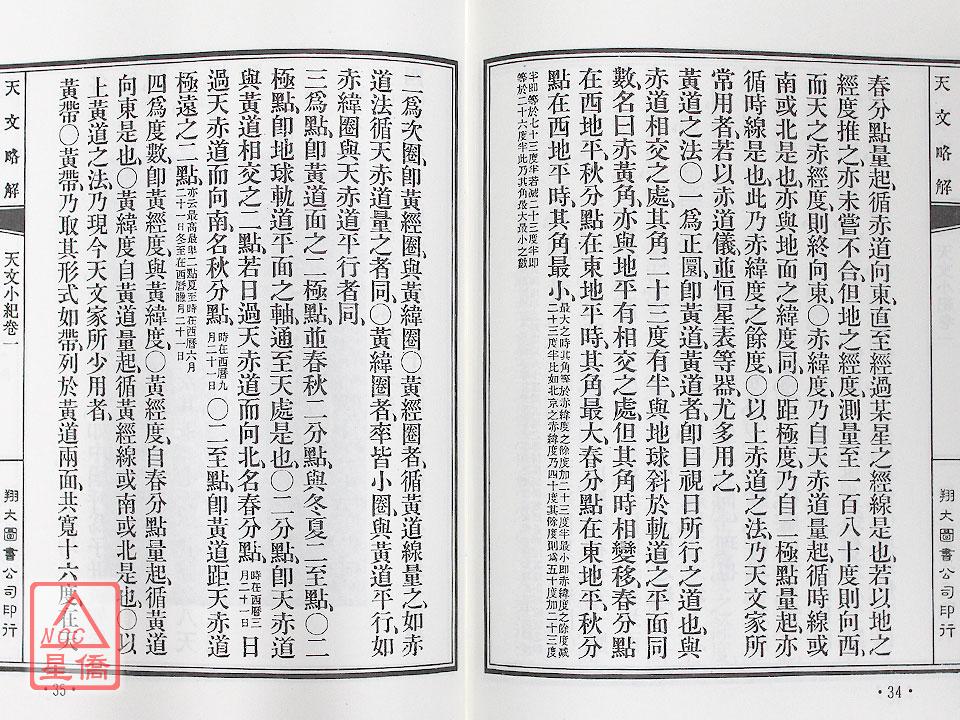 天文略解
翔大圖書公司印行
春分點量起、循赤道向東、直至經過某星之經線是也、若以地之
經度推之、亦未嘗不合、但地之經度、測量至一百八十度、則向西、
而天之赤經度、則終向東、〇赤緯度、乃自天赤道量起、循時線或
南或北是也、亦與地面之緯度同、〇距極度、乃自二極點量起、亦
循時線是也、此乃赤緯度之餘度、〇以上赤道之法、乃天文家所
常用者、若以赤道儀、並恒星表等器、尤多用之、
黃道之法〇一爲正圜、即黃道、黃道者、即目視日所行之道也、與
赤道相交之處、其角二十三度有半、與地球斜於軌道之平面同
數、名曰赤黃角、亦與地平有相交之處、但其角時相變移、春分點
在西地平、秋分點在東地平時、其角最大、春分點在東地平、秋分
點在西地平時、其角最小、最大之時其角等於赤緯度之餘度加二十三度半最小即赤緯度之餘度減
二十三度半比如北京之赤緯度乃四十度其餘度則爲五十度加二十三度
半即等於七十三度半若減二十三度半即
等於二十六度半此乃其角最大最小之數
·34·
二爲次圈、即黃經圈、與黃緯圈、〇黃經圈者、循黃道線量之、如赤
道法循天赤道量之者同、〇黃緯圈者、率皆小圈、與黃道平行、如
赤緯圈與天赤道平行者同、
三爲點、即黃道面之二極點、並春秋二分點、與冬夏二至點、〇二
極點、即地球軌道平面之軸、通至天處是也、〇二分點、即天赤道
與黃道相交之二點、若日過天赤道而向北、名春分點、時在西曆三
月二十一日 日
過天赤道而向南、名秋分點、時在西曆九
月二十二日 〇二至點、即黃道距天赤道
極遠之二點、亦云最高最卑二點夏至時在西曆六月
二十一日冬至在西曆臘月二十一日
四爲度數、即黃經度、與黃緯度、〇黃經度、自春分點量起、循黃道
向東是也、〇黃緯度、自黃道量起、循黃經線或南或北是也、〇以
上黃道之法、乃現今天文家所少用者、
黃帶〇黃帶、乃取其形式如帶、列於黃道兩面、共寬十六度、在
天文略解
天文小紀卷一
翔大圖書公司印行
·35·
NCC
星僑